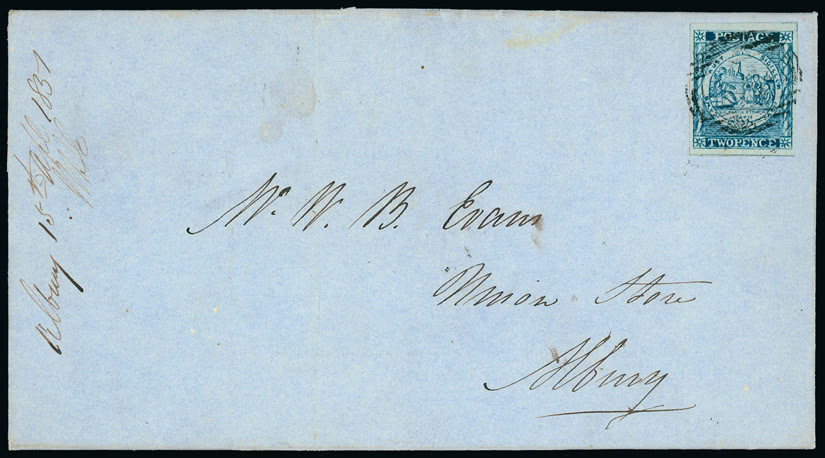 POSTAGE
TWOPENCE
Mr. W. B. Evans
Union Store
Albury
Albury 15th 1851